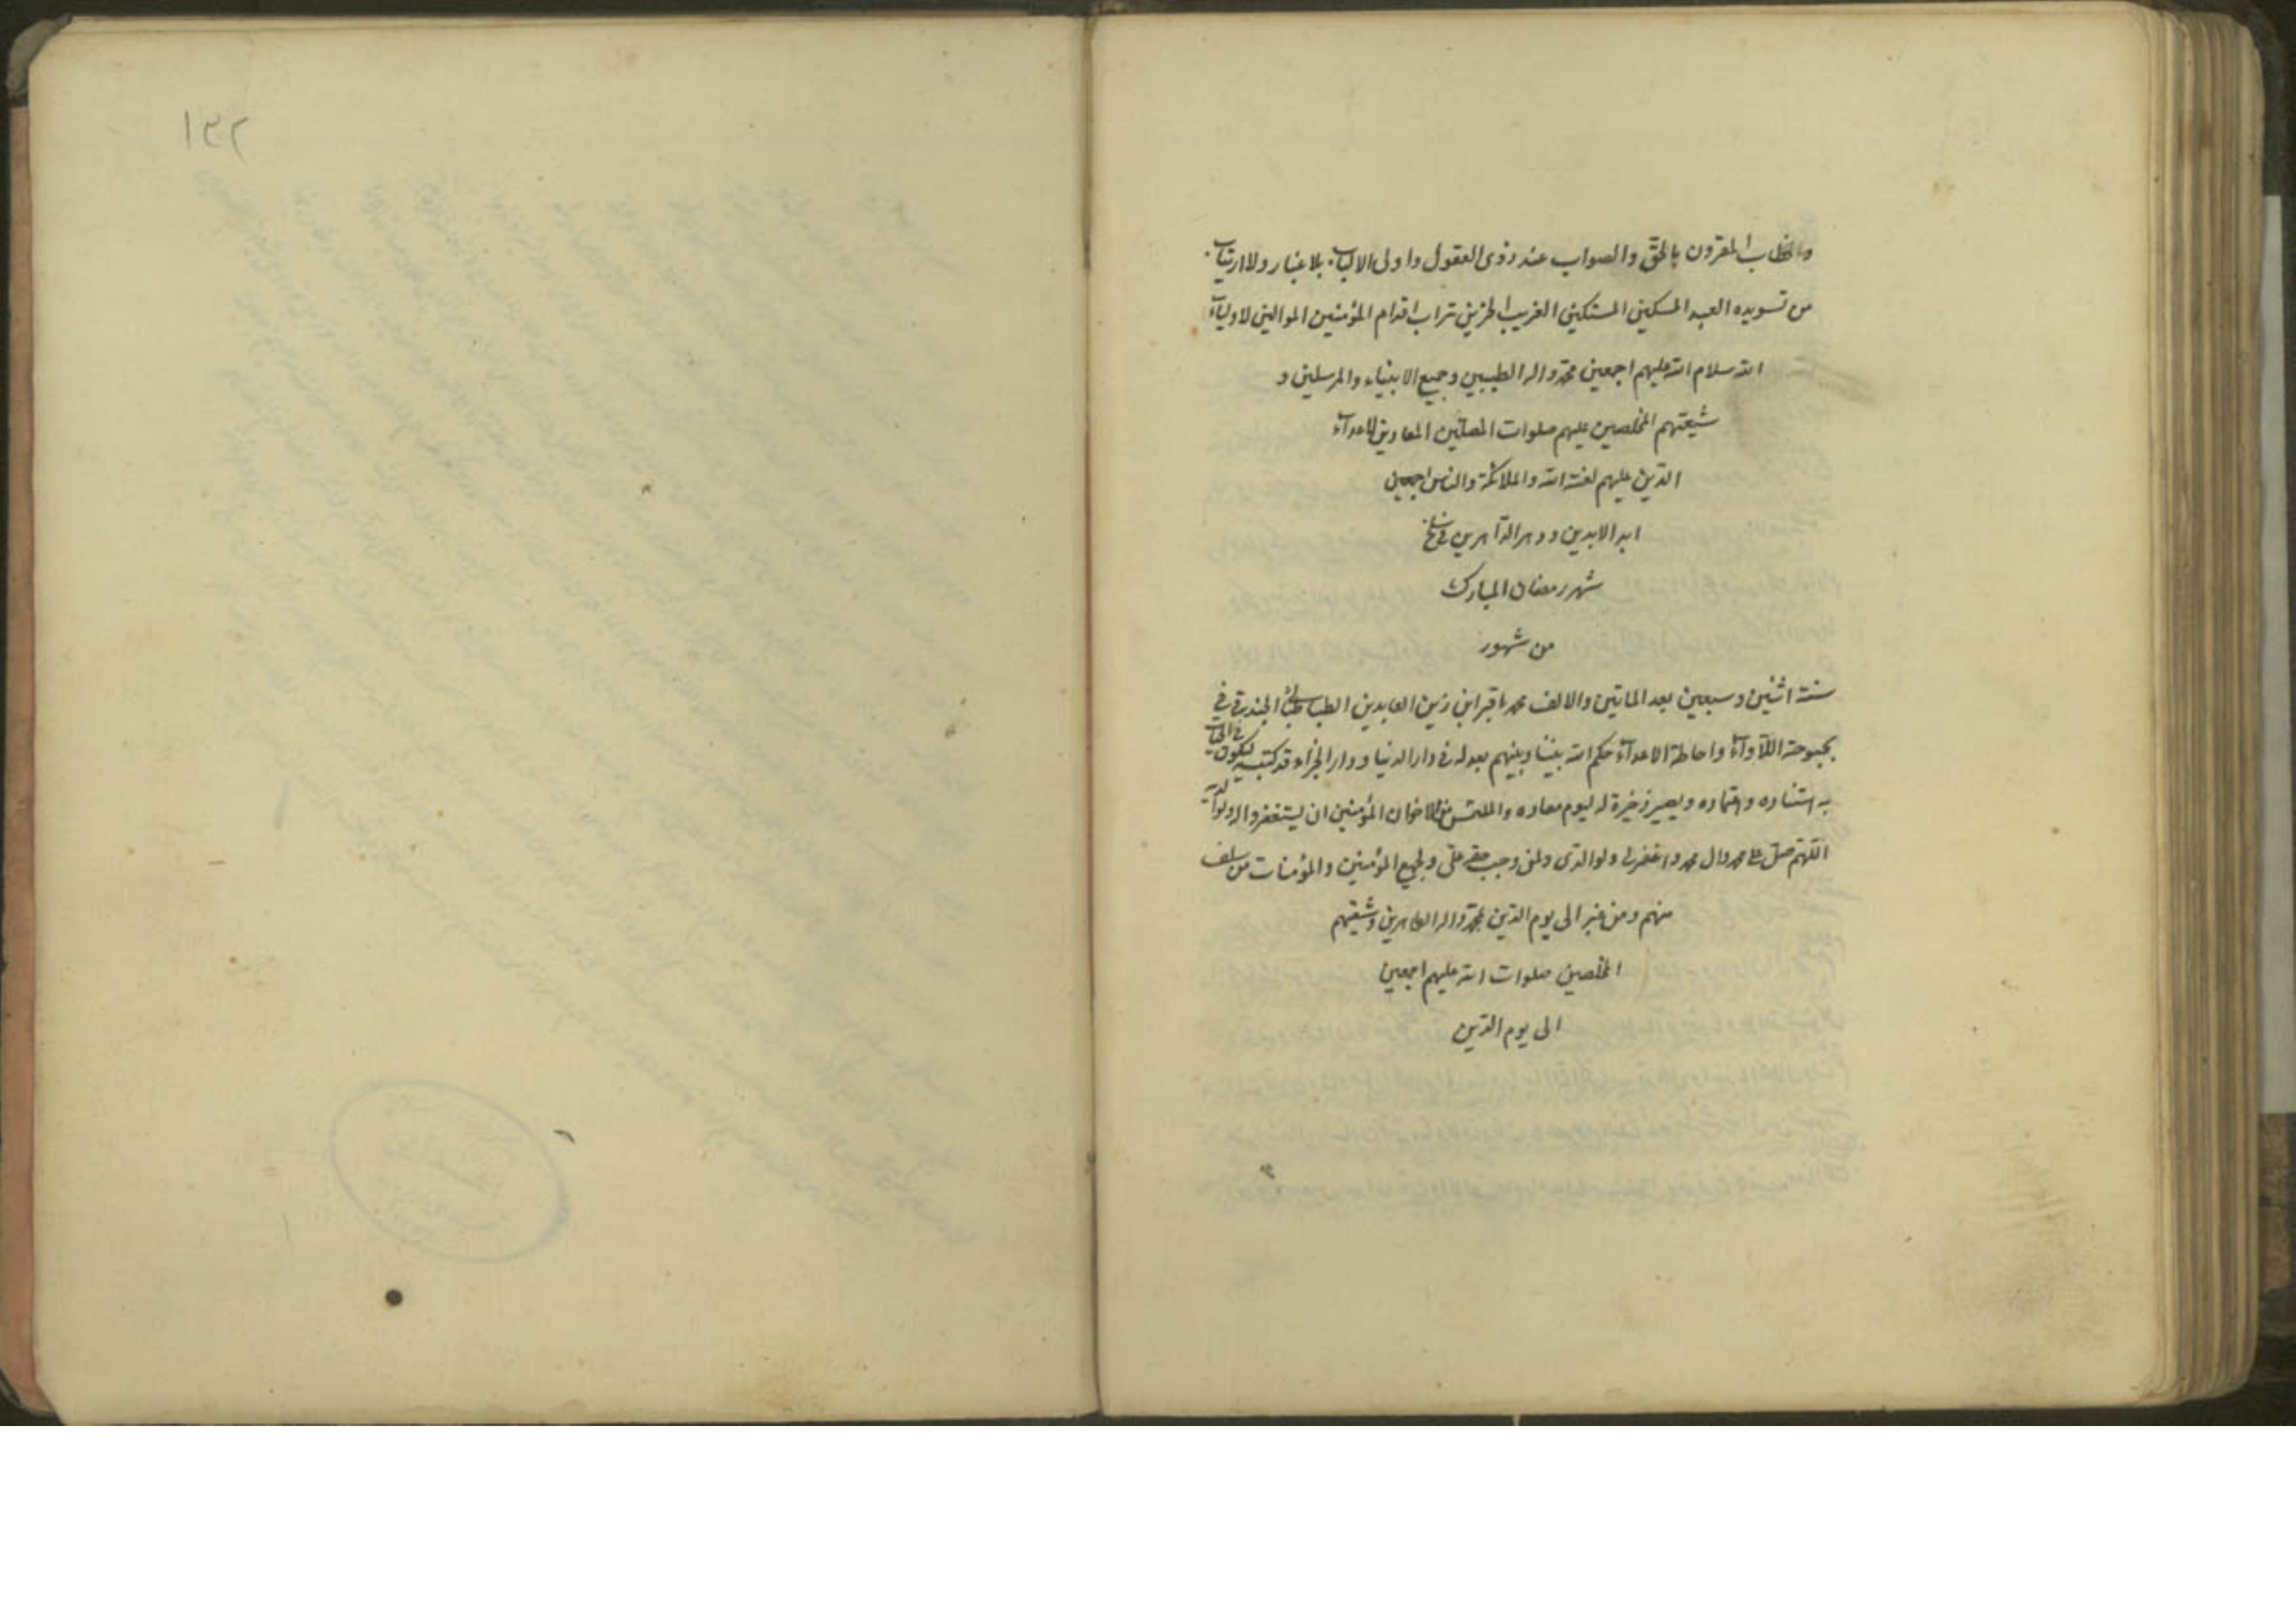 والخطاب المقرون بالحق والصواب عند ذوى العقول واولى الالباب بلا غبار ولا ارتياب
من تسويده العبد المسكين المستكين الغريب الحزين تراب اقدام المؤمنين الموالين لاولياء
الله سلام الله عليهم اجمعين محمد واله الطيبين وجميع الانبياء والمرسلين و
شيعتهم المخلصين عليهم صلوات المصلين المعادين لاعداء
الذين عليهم لعنة الله والملائكة والناس اجمعين
ابد الابدين ودهر الداهرين فى سلخ
شهر رمضان المبارك
من شهور
سنة اثنين وسبعين بعد الماتين والالف محمد باقر ابن زين العابدين الطباطبائى فى
بحبوحة اللأواء واحاطة الاعداء حكم الله بيننا وبينهم بعدله فى دار الدنيا ودار الجزاء وقد كتبته ليكون فى الحيات
به استناده واعتماده ويصير ذخيرة له ليوم معاده والملتمس من الاخوان المؤمنين ان يستغفروا له ولوالديه
اللهم صل على محمد وال محمد واغفر لى ولوالدى ولمن وجب حقه على ولجميع المؤمنين والمؤمنات من سلف
منهم ومن غبر الى يوم الدين بمحمد واله الطاهرين وشيعتهم
المخلصين صلوات الله عليهم اجمعين
الى يوم الدين
١٣٢